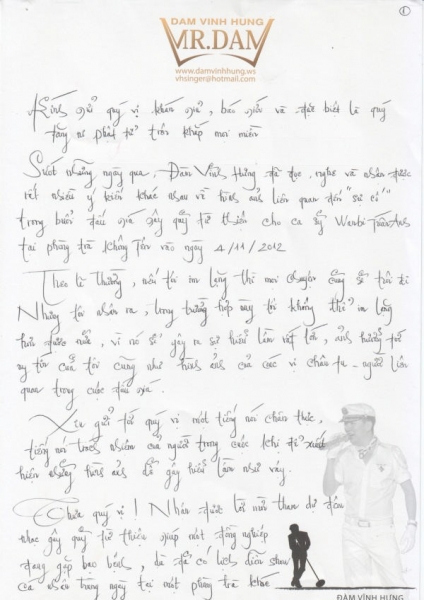 ①
ĐÀM VĨNH HƯNG
MR.DAM
www.damvinhhung.ws
vhsinger@hotmail.com
Kính gửi quý vị khán giả, báo giới và đặc biệt là quý
tăng ni phật tử trên khắp mọi miền
Suốt những ngày qua, Đàm Vĩnh Hưng đã đọc, nghe và nhận được
rất nhiều ý kiến khác nhau về hình ảnh liên quan đến "sự cố"
trong buổi đấu giá gây quỹ từ thiện cho ca sỹ Wanbi Tuấn Anh
tại phòng trà Không Tên vào ngày 4/11/2012
Theo lẽ thường, nếu tôi im lặng thì mọi chuyện cũng sẽ trôi đi
Nhưng tôi nhận ra, trong trường hợp này tôi không thể im lặng
hơn được nữa, vì nó sẽ gây ra sự hiểu lầm rất lớn, ảnh hưởng tới
uy tín của tôi cũng như hình ảnh của các vị chân tu - người liên
quan trong cuộc đấu giá.
Xin gửi tới quý vị một tiếng nói chân thực,
tiếng nói trách nhiệm của người trong cuộc khi để xuất
hiện những hình ảnh dễ gây hiểu lầm như vậy.
Thưa quý vị! Nhận được lời mời tham dự đêm
nhạc gây quỹ từ thiện giúp một đồng nghiệp
đang gặp bạo bệnh, dù đã có lịch diễn
cá nhân trong ngày tại một phòng trà khác
ĐÀM VĨNH HƯNG